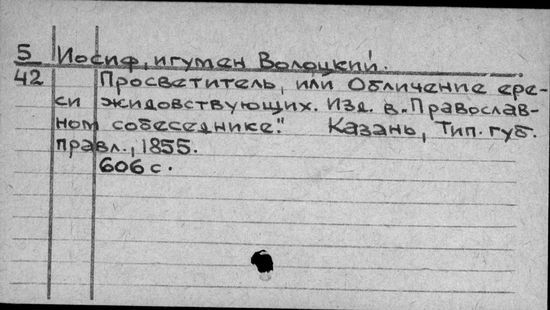 5 Иосиф, игумен Волоцкий.
42 Просветитель, или Обличение ере-
си жидовствующих. Изд. в „Православ-
ном собеседнике." Казань, Тип. губ.
правл., 1855.
606 с.